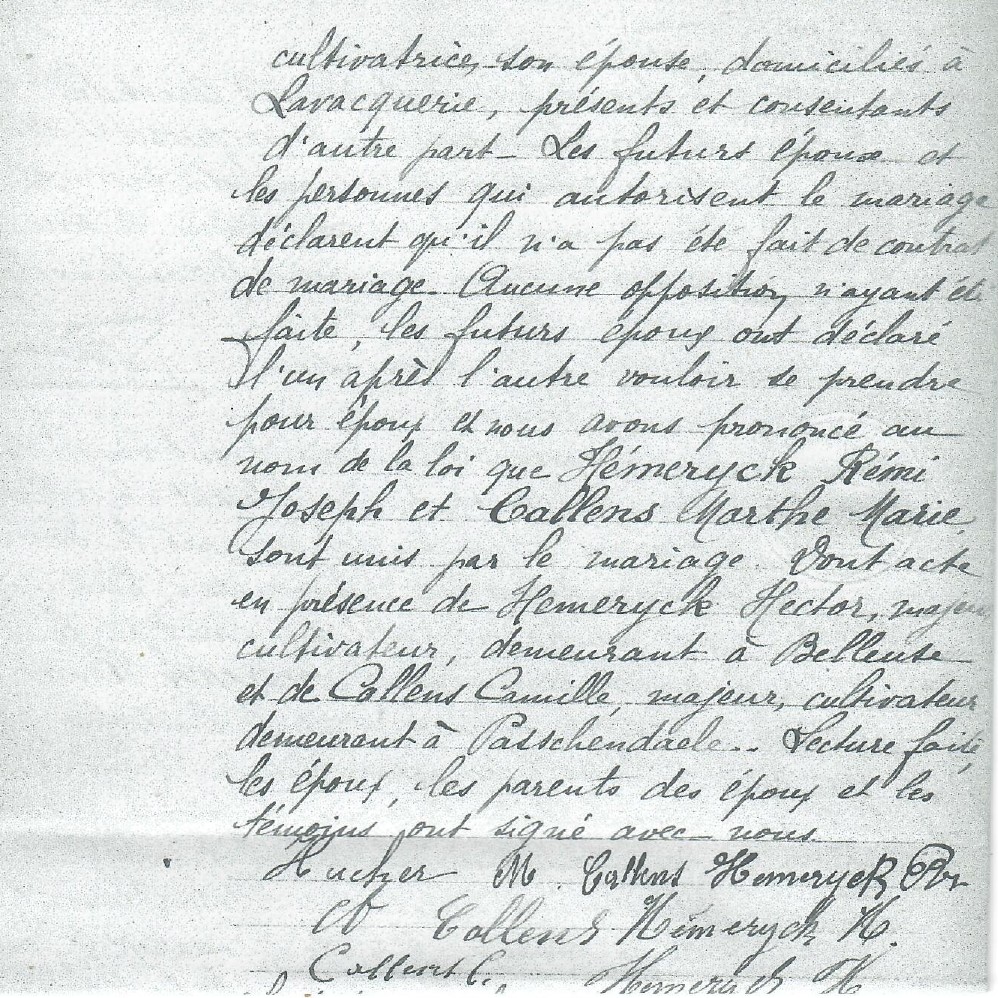 cultivatrice, son épouse, domiciliés à
Lavacquerie, présents et consentants
d'autre part_ Les futurs époux et
les personnes qui autorisent le mariage
déclarent qu'il n'a pas été fait de contrat
de mariage. Aucune opposition n'ayant été
faite, les futurs époux ont déclaré
l'un après l'autre vouloir se prendre
pour époux et nous avons prononcé au
nom de la loi que Hémeryck Rémi
Joseph et Callens Marthe Marie
sont unis par le mariage. Dont acte
en présence de Hemeryck Hector, majeur
cultivateur, demeurant à Belleuse
et de Callens Camille, majeur, cultivateur
demeurant à Passchendaele.. Lecture faite,
les époux, les parents des époux et les
témoins ont signé avec nous.
M. Callens Hemeryck
Callens Hémeryck H.
Callens C. Hemeryck H